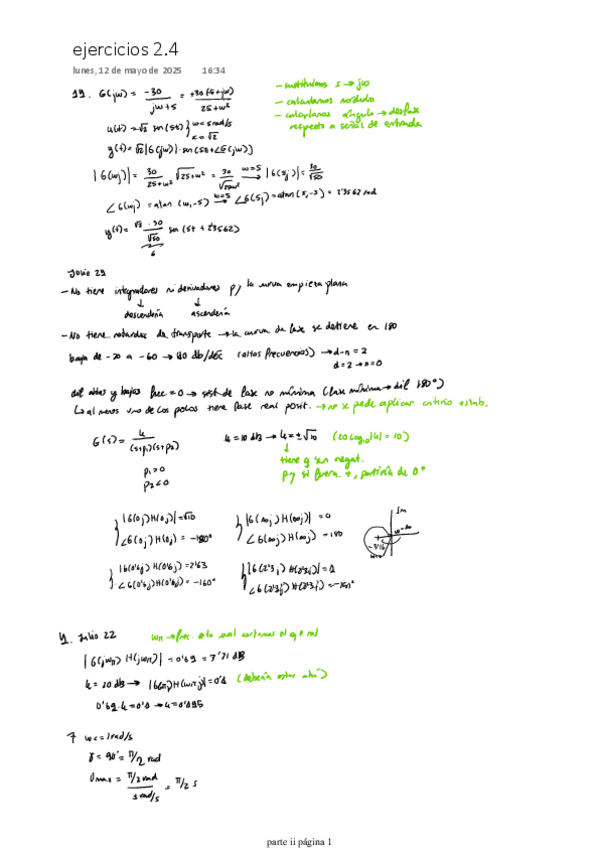 ejercicios 2.4
lunes, 12 de mayo de 2025 16:34
19. G(jω) = -30/(jω+5) = +30(-5+jω)/(25+ω²)
- sustituimos s → jω
- calculamos módulo
- calculamos ángulo → desfase
respecto a señal de entrada
u(t) = √2 sen(5t) } ω = 5 rad/s
y(t) = √2 |G(jω)| · sen(5t + ∠G(jω))
|G(ωj)| = 30/(25+ω²) √25+ω² = 30/√25+ω² ω=5 → |G(5j)| = 30/√50
∠G(ωj) = atan(ω,-5) ω=5 → ∠G(5j) = atan(5,-5) = 2'3562 rad
y(t) = √2 · 30/√50 sen(5t + 2'3562)
6
Julio 21
- No tiene integradores ni derivadores pq la curva empieza plana
descendería ascendería
- No tiene retardos de transporte → la curva de fase se detiene en 180
baja de -20 a -60 → 40 db/dec (altas frecuencias) → d-n = 2
d=2 → n=0
dif altas y bajas frec = 0 → sist de fase no mínima (fase mínima → dif 180°)
↳ al menos uno de los polos tiene parte real posit. → no se puede aplicar criterio estab.
G(s) = k/((s+p₁)(s+p₂))
k = 10 db → k = ±√10 (20 log₁₀|k| = 10)
p₁>0
p₂<0
tiene q ser negat.
pq si fuera +, partiría de 0°
|G(0j)H(0j)| = √10
∠G(0j)H(0j) = -180°
|G(∞j)H(∞j)| = 0
∠G(∞j)H(∞j) = -180
Im
|G(0'6j)H(0'6j)| = 2'63
∠G(0'6j)H(0'6j) = -160°
|G(2'3j)H(2'3j)| = 1
∠G(2'3j)H(2'3j) = -150°
4. Julio 22
ωπ → frec. a la cual cortamos el eje real
|G(jωπ)H(jωπ)| = 0'69 = 3'21 dB
k = 20 dB → |G(ωπj)H(ωπj)| = 0'1 (debería estar ahí)
0'69·k = 0'1 → k = 0'145
7 ωc = 1 rad/s
γ = 90° = π/2 rad
θmax = (π/2 rad)/(1 rad/s) = π/2 s
parte ii página 1